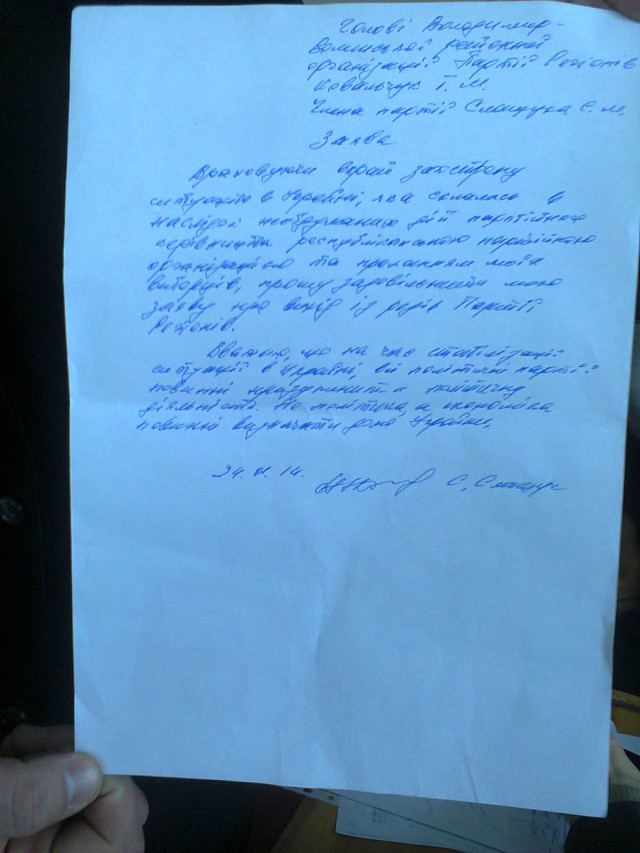 Голові Володимир-
Волинської районної
організації Партії Регіонів
Ковальчук І. М.
Члена партії Слащука С. М.
Заява
Враховуючи вкрай загострену
ситуацію в Україні, яка склалась в
наслідок необдуманих дій партійного
керівництва республіканською партійною
організацією та проханням моїх
виборців, прошу задовільнити мою
заяву про вихід із рядів Партії
Регіонів.
Вважаю, що на час стабілізації
ситуації в Україні, всі політичні партії
повинні призупинити політичну
діяльність. Не політика, а економіка
повинні визначати долю України.
24. 14.
С. Слащук